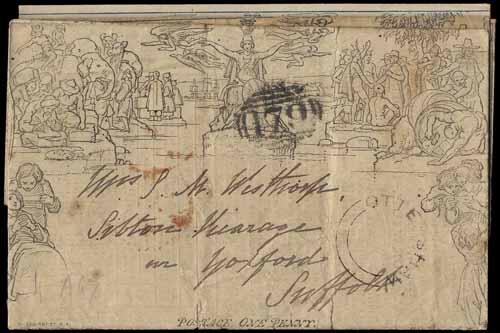 179
Mrs J. M. Westhorp,
Sibton Vicarage
Yoxford
Suffolk
POSTAGE ONE PENNY.